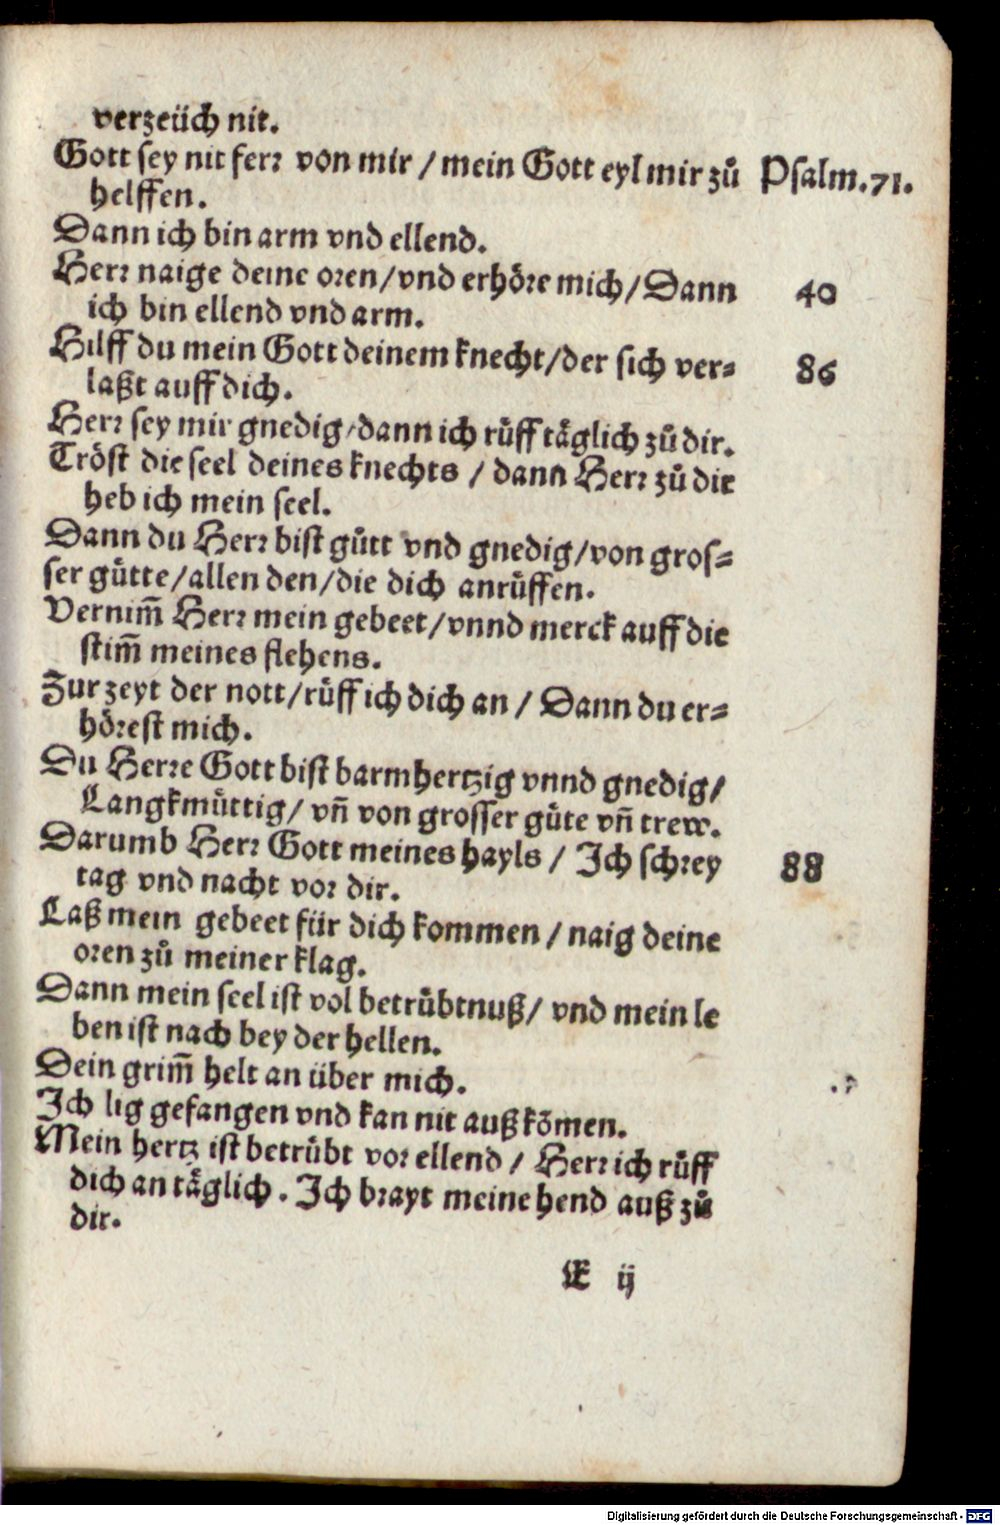 verzeüch nit.
Gott sey nit ferr von mir / mein Gott eyl mir zů Psalm.71.
helffen.
Dann ich bin arm vnd ellend.
Herr naige deine oren/vnd erhöre mich/Dann 40
ich bin ellend vnd arm.
Hilff du mein Gott deinem knecht/der sich ver= 86
laßt auff dich.
Herr sey mir gnedig/dann ich růff täglich zů dir.
Tröst die seel deines knechts / dann Herr zů dir
heb ich mein seel.
Dann du Herr bist gůtt vnd gnedig/von gros=
ser gůtte/allen den/die dich anrůffen.
Vernim̃ Herr mein gebeet/vnnd merck auff die
stim̃ meines flehens.
Zur zeyt der nott/růff ich dich an / Dann du er=
hörest mich.
Du Herre Gott bist barmhertzig vnnd gnedig/
Langkmůttig/ vñ von grosser gůte vñ trew.
Darumb Herr Gott meines hayls / Ich schrey 88
tag vnd nacht vor dir.
Laß mein gebeet für dich kommen / naig deine
oren zů meiner klag.
Dann mein seel ist vol betrůbtnuß/ vnd mein le
ben ist nach bey der hellen.
Dein grim̃ helt an über mich.
Ich lig gefangen vnd kan nit auß kõmen.
Mein hertz ist betrůbt vor ellend / Herr ich růff
dich an täglich. Ich brayt meine hend auß zů
dir.
E ij
Digitalisierung gefördert durch die Deutsche Forschungsgemeinschaft - DFG